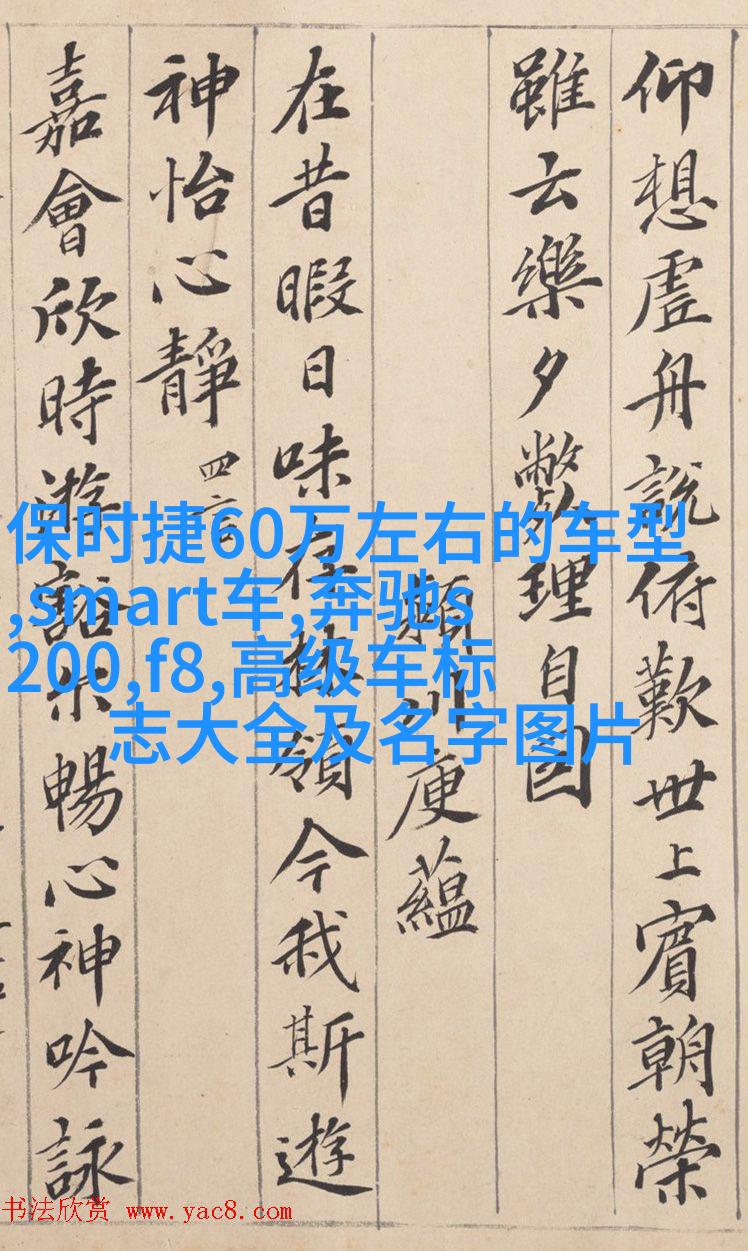 仰想虛舟說俯歎世上賓朝榮
雖云樂夕斃理自因
潁川庾蘊
在昔暇日味存林嶺今我斯遊
神怡心靜 四言
嘉會欣時遊豁尒暢心神吟詠
保时捷60万左右的车型
,smart车,奔驰s
200,f8,高级车标
志大全及名字图片
书法欣赏 www.yac8.com